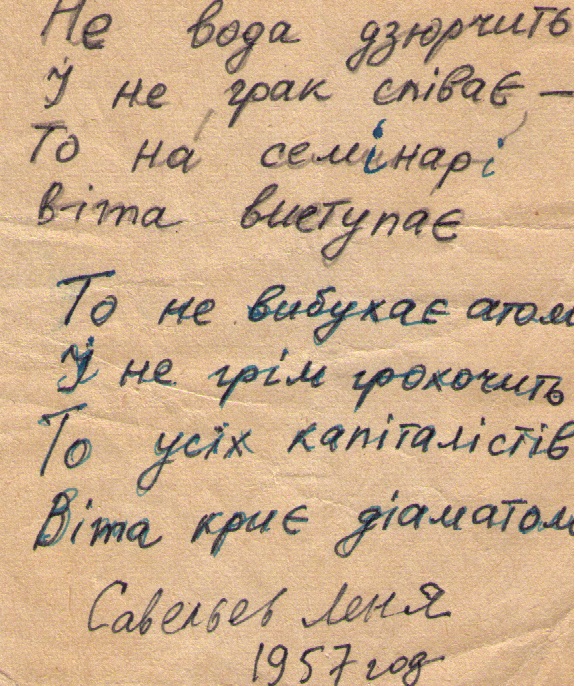 Не вода дзюрчить
І не грак співає —
То на семінарі
Віта виступає
То не вибухає атом
Й не грім грохочить
То усіх капіталістів
Віта криє діаматом
Савельев Леня
1957 год